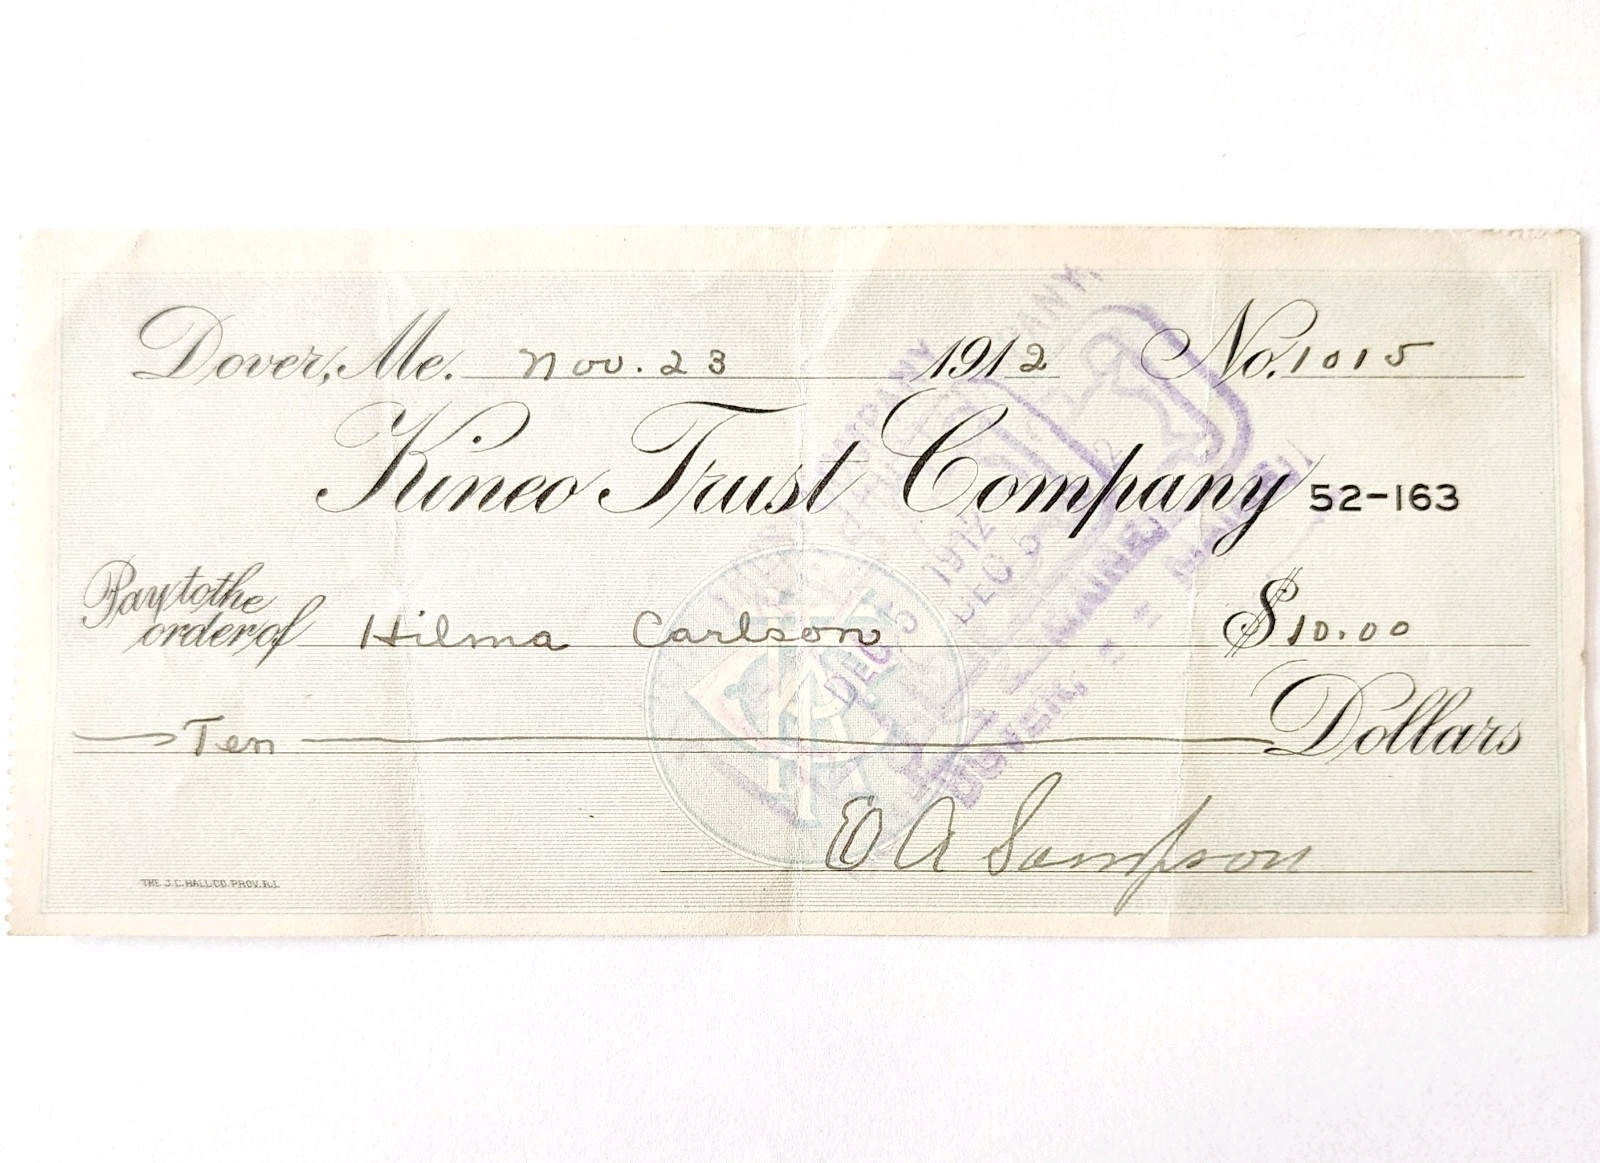 Dover, Me. Nov. 23 1912 No. 1015
Kineo Trust Company 52-163
Pay to the order of Hilma Carlson $10.00
Ten Dollars
E A Sampson
THE J.C. HALL CO. PROV. R.I.
COMPANY
1912
DEC 5
DEC 5
MAINE
DOVER,